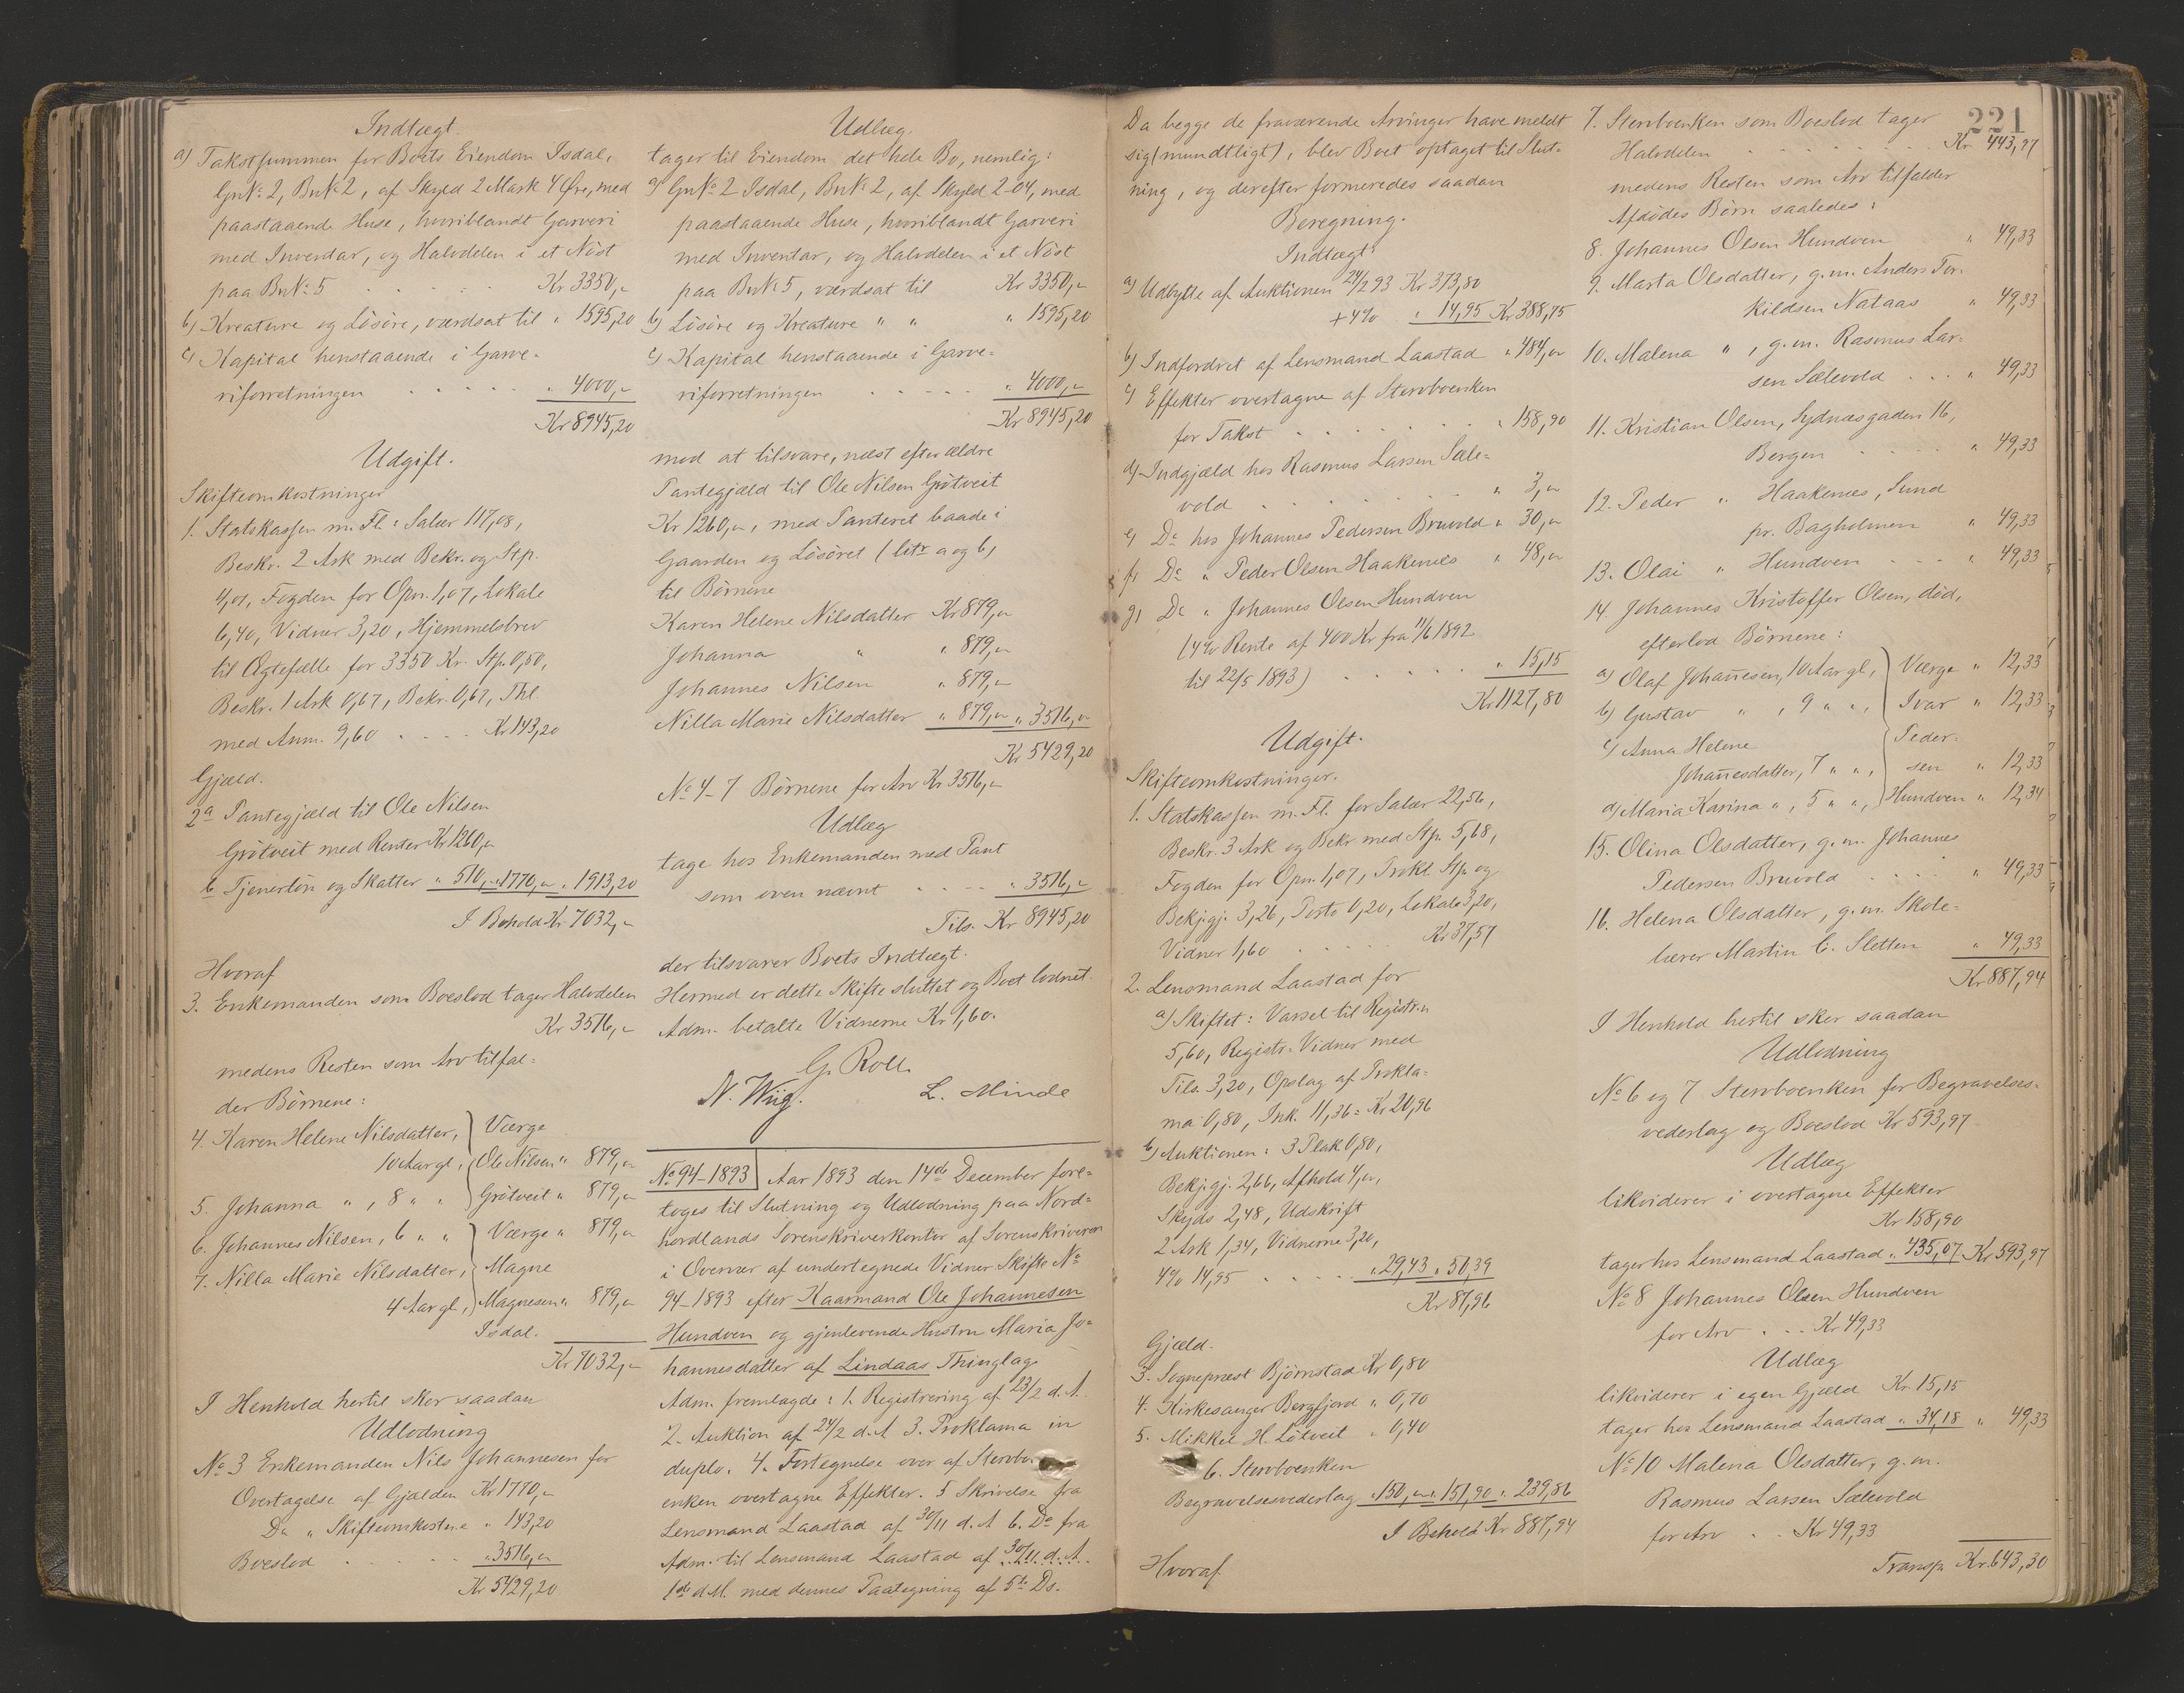 Indtægt.
a) Takstsummen for Boets Eiendom Isdal,
GrNo: 2, BnNo 2, af Skyld 2 Mark 4 Øre, med
paastaaende Huse, hvoriblandt Garveri
med Inventar, og Halvdelen i et Nöst
paa BnNo: 5 . . . . Kr 3350,-
b) Kreature og Lösöre, værdsat til " 1595,20
c) Kapital henstaaende i Garve-
riforretningen . . . . " 4000,-
Kr 8945,20
Udgift.
Skifteomkostninger
1. Statskassen m. Fl.: Salær 117,08,
Beskr. 2 Ark med Bekr. og Stp.
4,01, Fogden for Opn. 1,07, Lokale
6,40, Vidner 3,20, Hjemmelsbrev
til Ægtefælle for 3350 Kr. Stp. 0,50,
Beskr. 1 Ark 0,67, Bekr. 0,67, Thl.
med Anm. 9,60 . . . . Kr 143,20
Gjæld.
2a Pantegjæld til Ole Nilsen
Grötveit med Renter Kr 1260,-
b Tjenerlön og Skatter " 510,- " 1770,- " 1913,20
I Behold Kr 7032,-
Hvoraf
3. Enkemanden som Boeslod tager Halvdelen
Kr 3516,-
medens Resten som Arv tilfal-
der Börnene:
4. Karen Helene Nilsdatter, Værge
10 Aar gl, Ole Nilsen " 879,-
5. Johanna " , 8 " " Grötveit " 879,-
6. Johannes Nilsen, 6 " " Værge " 879,-
7. Nilla Marie Nilsdatter, Magne
4 Aar gl, Magnesen " 879,-
Isdal.
Kr 7032,-
I Henhold hertil sker saadan
Udlodning
No 3 Enkemanden Nils Johannesen for
Overtagelse af Gjælden Kr 1770,-
Do " Skifteomkostn.e " 143,20
Boeslod . . . . " 3516,-
Kr 5429,20
Udlæg.
tager til Eiendom det hele Bo, nemlig:
a) GnNo 2 Isdal, BnNo 2, af Skyld 2-04, med
paastaaende Huse, hvoriblandt Garveri
med Inventar, og Halvdelen i et Nöst
paa BnNo 5, værdsat til Kr 3350,-
b) Lösöre og Kreature " " " 1595,20
c) Kapital henstaaende i Garve-
riforretningen . . . . " 4000,-
Kr 8945,20
mod at tilsvare, næst efter ældre
Pantegjæld til Ole Nilsen Grötveit
Kr 1260,-, med Panteret baade i
Gaarden og Lösöret (litr a og b)
til Börnene
Karen Helene Nilsdatter Kr 879,-
Johanna " " 879,-
Johannes Nilsen " 879,-
Nilla Marie Nilsdatter " 879,- " 3516,-
Kr 5429,20
No 4-7 Börnene for Arv Kr 3516,-
Udlæg
tage hos Enkemanden med Pant
som oven nævnt . . . . " 3516,-
Tils. Kr 8945,20
der tilsvarer Boets Indtægt.
Hermed er dette Skifte sluttet og Boet lodnet.
Adm. betalte Vidnerne Kr 1,60.
G. Roll.
N. Wiig. L. Minde
No 94-1893 Aar 1893 den 14de December fore-
toges til Slutning og Udlodning paa Nord-
hordlands Sorenskriverkontor af Sorenskriveren
i Overvær af undertegnede Vidner Skifte No
94-1893 efter Kaarmand Ole Johannesen
Hundven og gjenlevende Hustru Maria Jo-
hannesdatter af Lindaas Thinglag
Adm. fremlagde: 1. Registrering af 23/2 d. A.
2. Auktion af 24/2 d. A 3. Proklama in
duplo. 4. Fortegnelse over af Stervbo
enken overtagne Effekter. 5 Skrivelse fra
Lensmand Laastad af 30/11 d. A 6. Do fra
Adm. til Lensmand Laastad af 30/11 d. A.
1ste d.M. med dennes Paategning af 5te Ds.
Da begge de fraværende Arvinger have meldt
sig (mundtligt), blev Boet optaget til Slut-
ning, og derefter formeredes saadan
Beregning.
Indtægt:
a) Udbytte af Auktionen 24/2 93 Kr 373,80
+ 4% " 14,95 Kr 388,75
b) Indfordret af Lensmand Laastad " 484,-
c) Effekter overtagne af Stervboenken
for Takst . . . . " 158,90
d) Indgjæld hos Rasmus Larsen Sæle-
vold . . . . " 3,-
e) Do hos Johannes Pedersen Bruvold " 30,-
f) Do " Peder Olsen Haakenes " 48,-
g) Do " Johannes Olsen Hundven
(4% Rente af 400 Kr fra 11/6 1892
til 22/5 1893) . . . . " 15,15
Kr 1127,80
Udgift.
Skifteomkostninger.
1. Statskassen m. Fl. for Salær 22,56,
Beskr. 3 Ark og Bekr med Stp. 5,68,
Fogden for Opn. 1,07, Prokl. Stp. og
Bekjgj. 3,26, Porto 0,20, Lokale 3,20,
Vidner 1,60 . . . . Kr 37,57
2. Lensmand Laastad for
a) Skiftet: Varsel til Registr.n
5,60, Registr. Vidner med
Tils. 3,20, Opslag af Prokla-
ma 0,80, Ink. 11,36 = Kr 20,96
b) Auktionen: 3 Plak 0,80,
Bekjgj. 2,66, Afhold 4,-,
Skyds 2,48, Udskrift
2 Ark 1,34, Vidnerne 3,20,
4% 14,95 . . . . " 29,43 " 50,39
Kr 87,96
Gjæld.
3. Sogneprest Bjørnstad Kr 0,80
4. Kirkesanger Bergfjord " 0,70
5. Mikkel H. Lötveit " 0,40
6. Stervboenken
Begravelsesvederlag " 150,- " 151,90 " 239,86
I Behold Kr 887,94
Hvoraf
221
7. Stervboenken som Boeslod tager
Halvdelen . . . . Kr 443,97
medens Resten som Arv tilfalder
Afdödes Börn saaledes:
8. Johannes Olsen Hundven " 49,33
9. Marta Olsdatter, g.m. Anders Tor-
kildsen Nataas " 49,33
10. Malena " , g.m. Rasmus Lar-
sen Sælevold . . . " 49,33
11. Kristian Olsen, Sydnæsgaden 16,
Bergen . . . . " 49,33
12. Peder " Haakenes, Sund
pr. Bagholmen " 49,33
13. Olai " Hundven . . . " 49,33
14. Johannes Kristoffer Olsen, död,
efterlod Börnene:
a) Olaf Johañesen, 10 Aar gl, Værge " 12,33
b) Gustav " , 9 " " , Ivar " 12,33
c) Anna Helene Peder-
Johañesdatter, 7 " " , sen " 12,33
d) Maria Karina " , 5 " " , Hundven " 12,34
15. Olina Olsdatter, g.m. Johannes
Pedersen Bruvold . . . . " 49,33
16. Helena Olsdatter, g.m. Skole-
lærer Martin C. Sletten " 49,33
Kr 887,94
I Henhold hertil sker saadan
Udlodning
No 6 og 7 Stervboenken for Begravelses-
vederlag og Boeslod Kr 593,97
Udlæg
likviderer i overtagne Effekter
Kr 158,90
tager hos Lensmand Laastad " 435,07 Kr 593,97
No 8 Johannes Olsen Hundven
for Arv . . . Kr 49,33
Udlæg
likviderer i egen Gjæld Kr 15,15
tager hos Lensmand Laastad " 34,18 " 49,33
No 10 Malena Olsdatter, g.m.
Rasmus Larsen Sælevold
for Arv . . Kr 49,33
Transp. Kr. 643,30